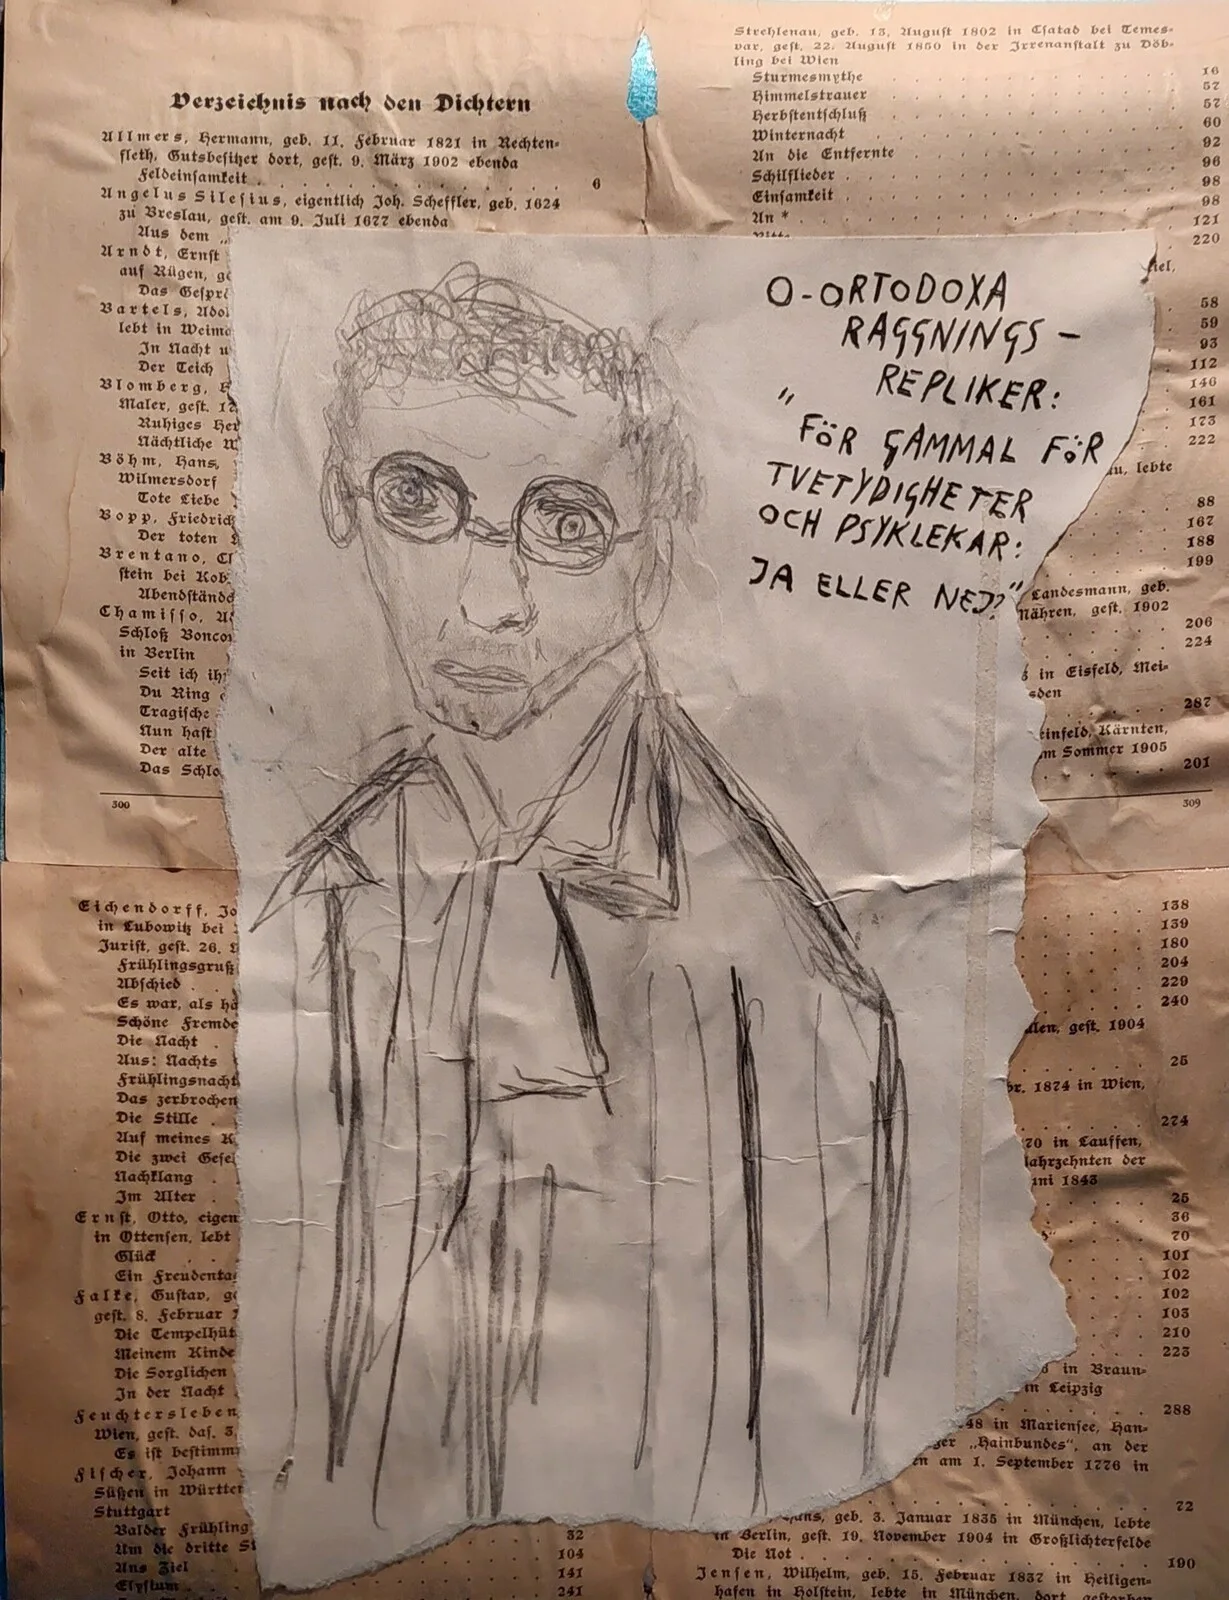 Verzeichnis nach den Dichtern
Allmers, Hermann, geb. 11. Februar 1821 in Rechten-
fleth, Gutsbesitzer dort, gest. 9. März 1902 ebenda
Feldeinsamkeit . . . . . . . . . . . . . 6
Angelus Silesius, eigentlich Joh. Scheffler, geb. 1624
zu Breslau, gest. am 9. Juli 1677 ebenda
Aus dem
Arndt, Ernst
auf Rügen,
Das
Bartels,
lebt in
In Nacht
Der Teich
Blomberg,
Maler, gest.
Ruhiges
Nächtliche
Böhm, Hans,
Wilmersdorf
Tote Liebe
Bopp,
Der toten
Brentano,
stein bei
Chamisso,
Schloß
in Berlin
Seit ich
Du Ring
Tragische
Nun hast
Der alte
Das
309
Strehlenau, geb. 13. August 1802 in Csatad bei Temes-
var, gest. 22. August 1850 in der Irrenanstalt zu Döb-
ling bei Wien
Sturmesmythe . . . . . . . . . . 16
Himmelstrauer . . . . . . . . . . 57
Herbstentschluß . . . . . . . . . . 57
Winternacht . . . . . . . . . . 60
An die Entfernte . . . . . . . . . . 92
Schilflieder . . . . . . . . . . 96
Einsamkeit . . . . . . . . . . 98
An * . . . . . . . . . . 98
121
220
58
59
93
112
146
161
173
222
lebte
88
167
188
199
Landesmann, geb.
gest. 1902
206
224
in Eisfeld, Mei-
287
Kärnten,
Sommer 1905
201
O-ORTODOXA
RAGGNINGS-
REPLIKER:
"FÖR GAMMAL FÖR
TVETYDIGHETER
OCH PSYKLEKAR:
JA ELLER NEJ?"
Eichendorff,
in Lubowitz bei
Jurist, gest. 26.
Frühlingsgruß
Abschied .
Es war, als
Schöne
Die Nacht .
Aus: Nachts
Das
Die Stille .
Auf meines
Die zwei
Nachklang .
Im Alter .
Ernst, Otto,
in Ottensen, lebt
Glück . .
Ein
Falke, Gustav,
gest. 8. Februar
Die
Meinem Kinde
Die Sorglichen
In der Nacht
Feuchtersleben,
Wien, gest. das. 3.
Es ist
Fischer, Johann
Süßen in
Stuttgart
Balder
Um die dritte . . 32
Ans Ziel . . 104
Elysium . . 141
241
138
139
180
204
229
240
gest. 1904
25
1874 in Wien,
274
in Lauffen,
der
1843
25
36
70
101
102
102
103
210
223
in Braun-
in Leipzig
288
in Mariensee, Han-
„Hainbundes", an der
am 1. September 1776 in
72
geb. 3. Januar 1835 in München, lebte
in Berlin, gest. 19. November 1904 in Großlichterfelde
Die Not . . . . . . . . . . 190
Jensen, Wilhelm, geb. 15. Februar 1837 in Heiligen-
hafen in Holstein, lebte in München, dort gestorben